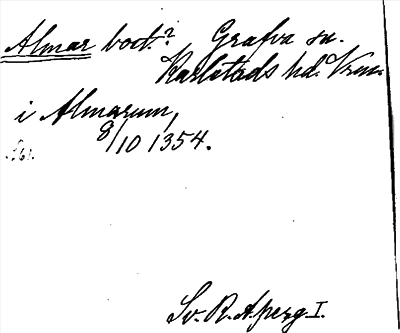 Almar bort.? Grafva sn.
Karlstads hd. Vrml.
i Almarum,
8/10 1354.
Sv. R. A. perg. I.